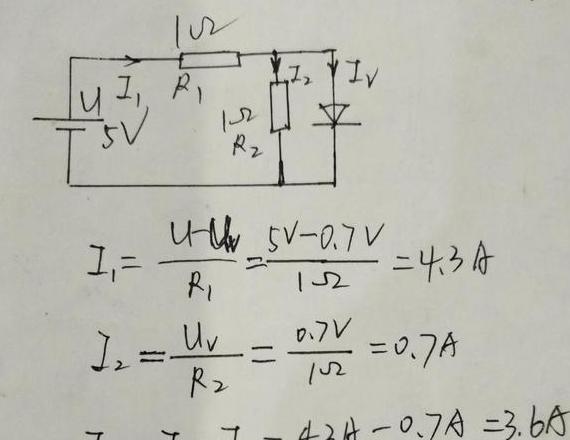 1Ω
U I₁ R₁ I₂ Iᵥ
5V 1Ω
R₂
I₁ = (U-Uᵥ)/R₁ = (5V-0.7V)/1Ω = 4.3A
I₂ = Uᵥ/R₂ = 0.7V/1Ω = 0.7A
= 4.3A - 0.7A = 3.6A